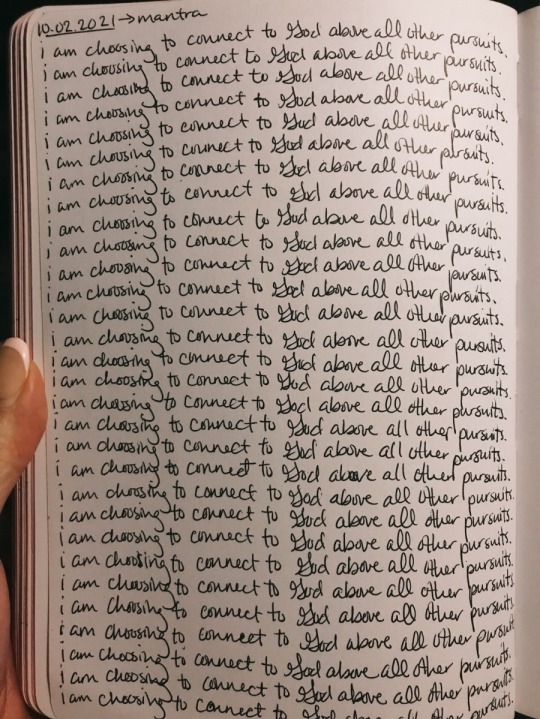 10.02.2021 → mantra
i am choosing to connect to God above all other pursuits.
i am choosing to connect to God above all other pursuits.
i am choosing to connect to God above all other pursuits.
i am choosing to connect to God above all other pursuits.
i am choosing to connect to God above all other pursuits.
i am choosing to connect to God above all other pursuits.
i am choosing to connect to God above all other pursuits.
i am choosing to connect to God above all other pursuits.
i am choosing to connect to God above all other pursuits.
i am choosing to connect to God above all other pursuits.
i am choosing to connect to God above all other pursuits.
i am choosing to connect to God above all other pursuits.
i am choosing to connect to God above all other pursuits.
i am choosing to connect to God above all other pursuits.
i am choosing to connect to God above all other pursuits.
i am choosing to connect to God above all other pursuits.
i am choosing to connect to God above all other pursuits.
i am choosing to connect to God above all other pursuits.
i am choosing to connect to God above all other pursuits.
i am choosing to connect to God above all other pursuits.
i am choosing to connect to God above all other pursuits.
i am choosing to connect to God above all other pursuits.
i am choosing to connect to God above all other pursuits.
i am choosing to connect to God above all other pursuits.
i am choosing to connect to God above all other pursuits.
i am choosing to connect to God above all other pursuits.
i am choosing to connect to God above all other pursuits.
i am choosing to connect to God above all other pursuits.
i am choosing to connect to God above all other pursuits.
i am choosing to connect to God above all other pursuits.